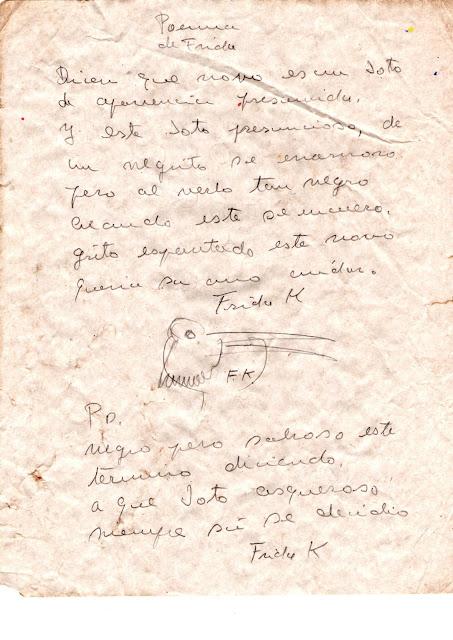 Poema
de Frida
Dicen que novo es un Joto
de apariencia presumida.
Y este Joto presuncioso, de
un negrito se enamoro
pero al verlo tan negro
cuando este se encuero,
grito espantado este novo
queria su ano cuidar.
Frida K
F.K.
PD.
negro pero sabroso este
termino diciendo.
a que Joto asqueroso
siempre si se decidio
Frida K